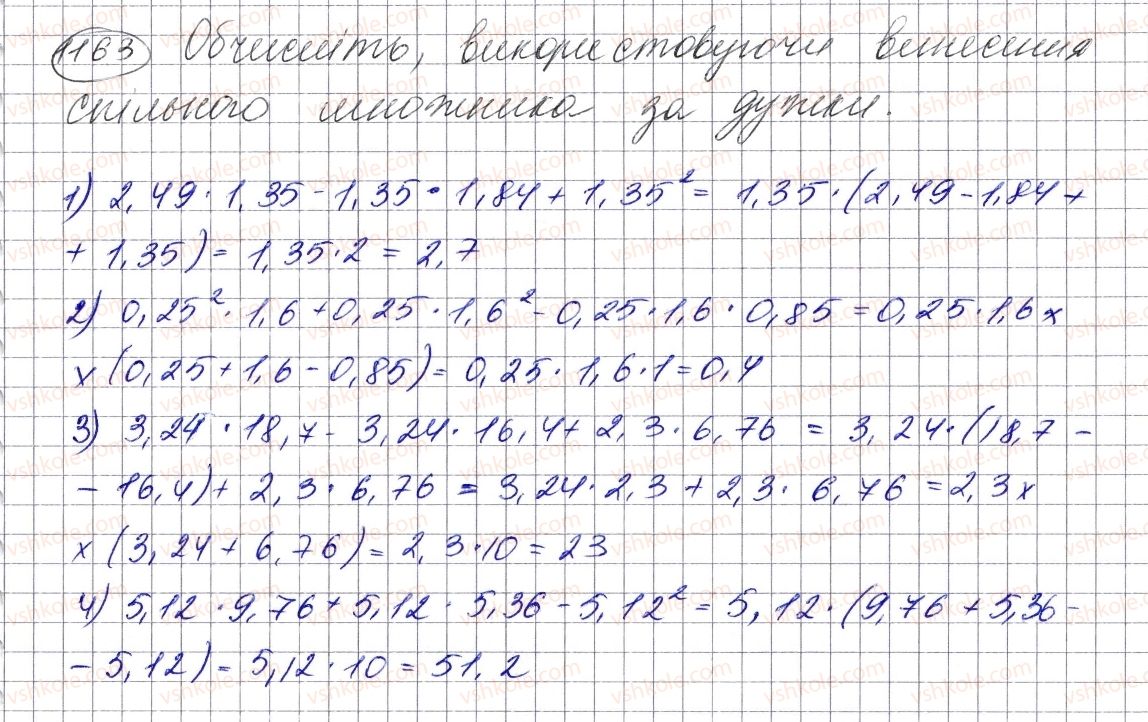 1163 Обчисліть, використовуючи винесення
спільного множника за дужки.
1) 2,49 · 1,35 - 1,35 · 1,84 + 1,35² = 1,35 · (2,49 - 1,84 +
+ 1,35) = 1,35 · 2 = 2,7
2) 0,25² · 1,6 + 0,25 · 1,6² - 0,25 · 1,6 · 0,85 = 0,25 · 1,6 x
x (0,25 + 1,6 - 0,85) = 0,25 · 1,6 · 1 = 0,4
3) 3,24 · 18,7 - 3,24 · 16,4 + 2,3 · 6,76 = 3,24 · (18,7 -
- 16,4) + 2,3 · 6,76 = 3,24 · 2,3 + 2,3 · 6,76 = 2,3 x
x (3,24 + 6,76) = 2,3 · 10 = 23
4) 5,12 · 9,76 + 5,12 · 5,36 - 5,12² = 5,12 · (9,76 + 5,36 -
- 5,12) = 5,12 · 10 = 51,2